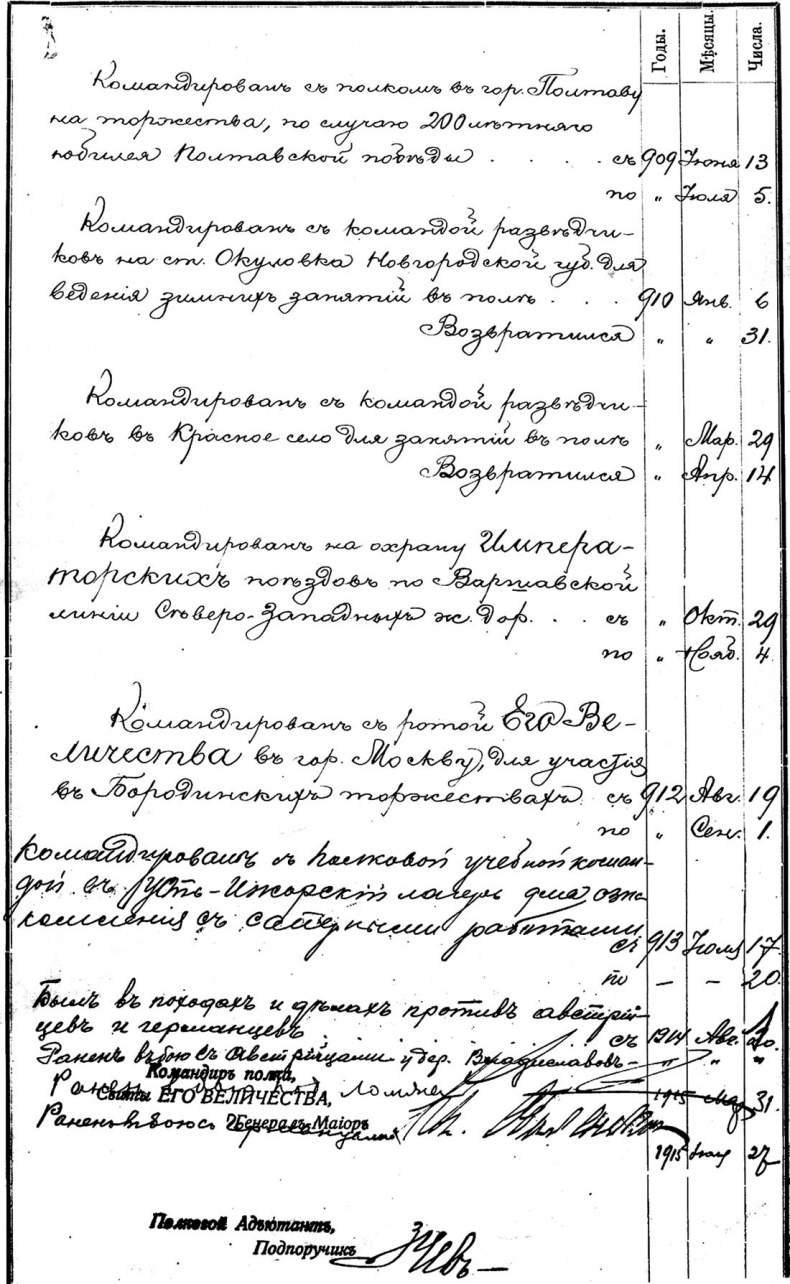 Годы. Мѣсяцы. Числа.
Командированъ съ полкомъ въ гор. Полтаву
на торжества, по случаю 200 лѣтняго
юбилея Полтавской побѣды . . . . съ 909 Іюня 13
по „ Іюля 5.
Командированъ съ командой развѣдчи-
ковъ на ст. Окуловка Новгородской губ. для
веденія зимнихъ занятій въ полѣ . . . 910 Янв. 6
Возвратился „ „ 31.
Командированъ съ командой развѣдчи-
ковъ въ Красное село для занятій въ полѣ „ Мар. 29
Возвратился „ Апр. 14
Командированъ на охрану Импера-
торскихъ поѣздовъ по Варшавской
линіи Сѣверо-Западныхъ ж. дор. . . съ „ Окт. 29
по „ Нояб. 4.
Командированъ съ ротой Его Ве-
личества въ гор. Москву, для участія
въ Бородинскихъ торжествахъ съ 912 Авг. 19
по „ Сен. 1.
Командированъ съ полковой учебной коман-
дой въ Усть-Ижорскій лагерь для озна
комленія съ саперными работами
съ 913 Іюля 17
по — — 20.
Былъ въ походахъ и дѣлахъ противъ австрій-
цевъ и германцевъ съ 1914 Авг.
Раненъ въ бою съ австрійцами у дер. Владиславовъ — „ „ „
Командиръ полка,
Раненъ Ломжей 1915 31.
Свиты ЕГО ВЕЛИЧЕСТВА,
Раненъ въ бою съ
Генералъ-Маіоръ
1915 Іюля 27
Полковой Адъютантъ,
Подпоручикъ